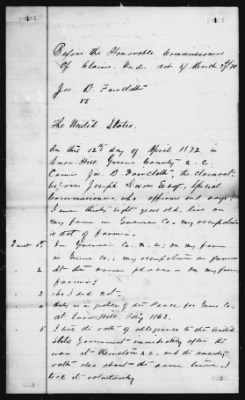 Before the Honorable Commissioners
Of Claims. Under act of March 3d/71
Jas. B. Faircloth
vs
The United States.
On this 12th day of April 1872 in
Snow Hill Greene County N.C.
Came Jas. B. Faircloth, the claimant,
before Joseph Dixon Esqr, Special
Commissioner, who affirms and says:
I am thirty eight years old, live on
my farm in Greene Co., my occupation
is that of farmer.
Quest 1st. In Greene Co. N.C; on my farm
in Greene co; my occupation a farmer
2 At the same place on my farm
farming;
3 No. I did not.
Duty as a Justice of the Peace for Greene Co.
at Snow Hill. July 1863.
5 I took the oath of allegiance to the United
States Government immediately after the
war at Newbern N.C. and the amnesty
oath also about the same time. I
took it voluntarily